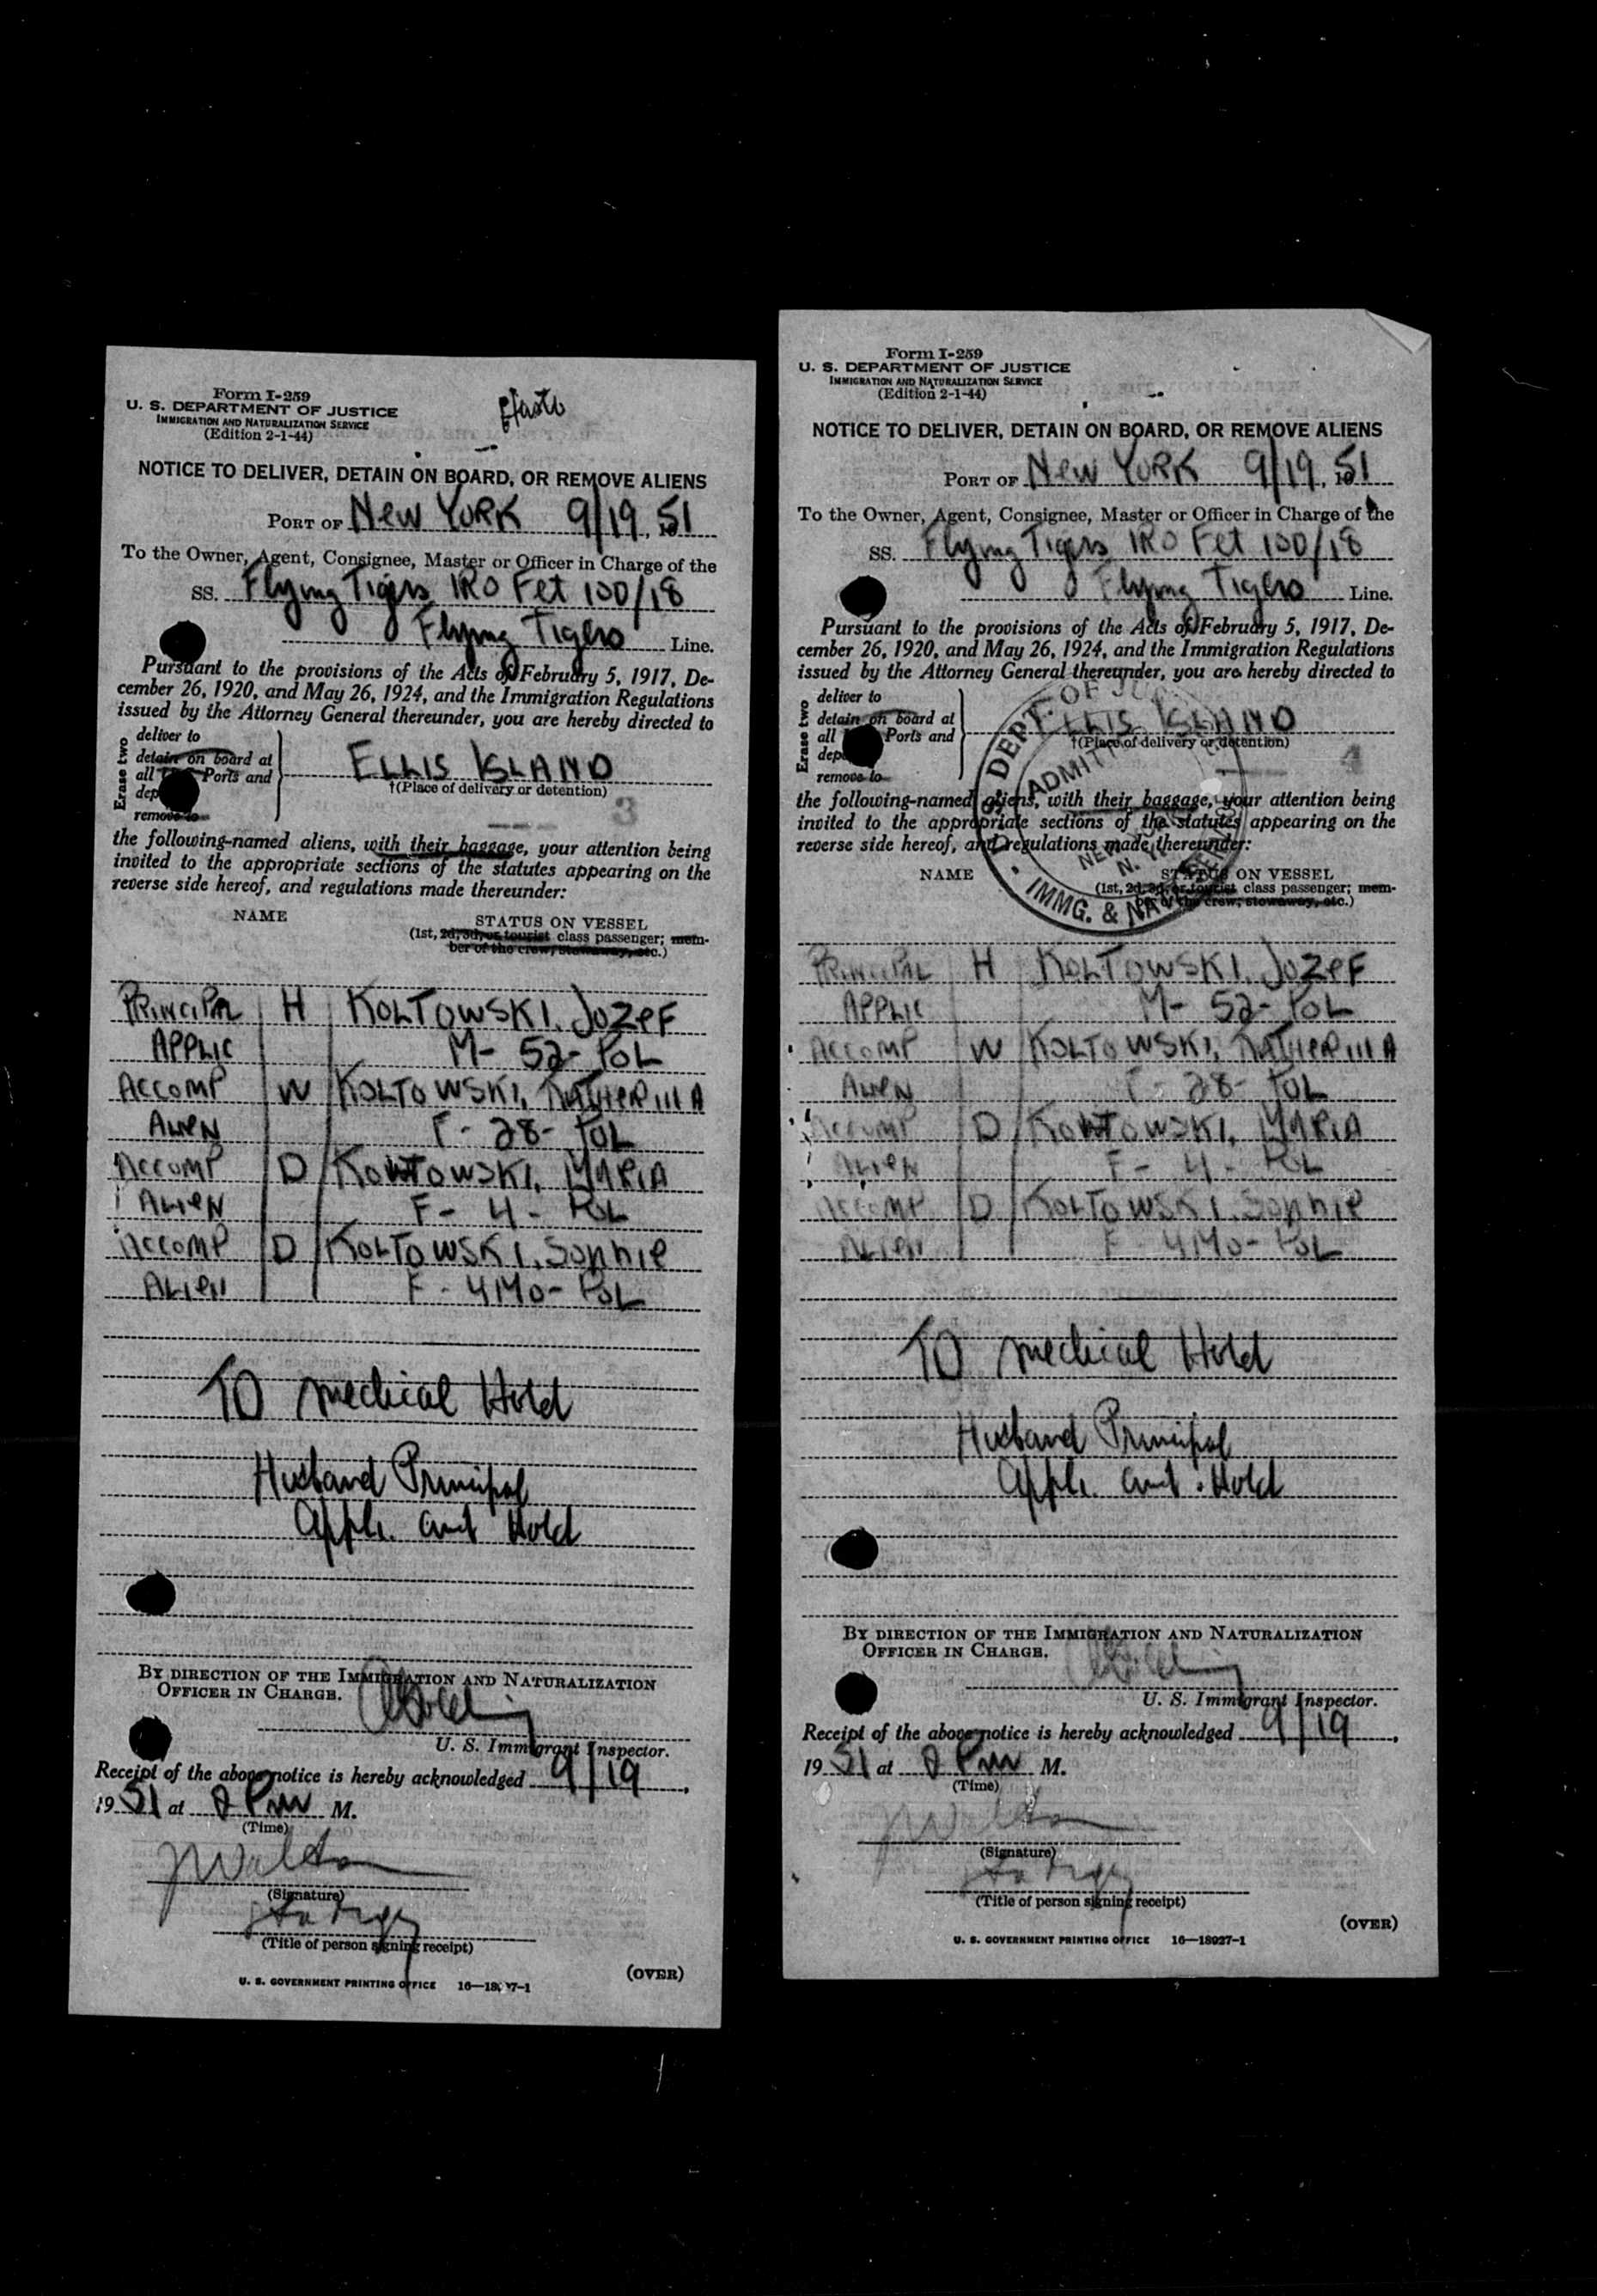 Form I-259
U. S. DEPARTMENT OF JUSTICE
IMMIGRATION AND NATURALIZATION SERVICE
(Edition 2-1-44)
NOTICE TO DELIVER, DETAIN ON BOARD, OR REMOVE ALIENS
PORT OF New YORK 9/19, 1951
To the Owner, Agent, Consignee, Master or Officer in Charge of the
SS. Flying Tigers IRO Fet 100/18
Flying Tigers Line.
Pursuant to the provisions of the Acts of February 5, 1917, De-
cember 26, 1920, and May 26, 1924, and the Immigration Regulations
issued by the Attorney General thereunder, you are hereby directed to
Erase two
deliver to
detain on board at
all Ports and
dep
remove to
ELLIS ISLAND
†(Place of delivery or detention)
3
the following-named aliens, with their baggage, your attention being
invited to the appropriate sections of the statutes appearing on the
reverse side hereof, and regulations made thereunder:
NAME STATUS ON VESSEL
(1st, 2d, 3d, or tourist class passenger; mem-
ber of the crew, stowaway, etc.)
PRINCIPAL H KOLTOWSKI, JOZEF
APPLIC M- 52- POL
ACCOMP W KOLTOWSKI, KATHERINA
ALIEN F- 28- POL
ACCOMP D KOLTOWSKI, MARIA
ALIEN F- 4- POL
ACCOMP D KOLTOWSKI, Sophie
ALIEN F- 4Mo- POL
TO medical Hold
Husband Principal
Applc. and Hold
BY DIRECTION OF THE IMMIGRATION AND NATURALIZATION
OFFICER IN CHARGE.
U. S. Immigrant Inspector.
Receipt of the above notice is hereby acknowledged 9/19,
1951 at 2 Pm M.
(Time)
JWalton
(Signature)
(Title of person signing receipt)
(OVER)
U. S. GOVERNMENT PRINTING OFFICE 16—18 7-1
Form I-259
U. S. DEPARTMENT OF JUSTICE
IMMIGRATION AND NATURALIZATION SERVICE
(Edition 2-1-44)
NOTICE TO DELIVER, DETAIN ON BOARD, OR REMOVE ALIENS
PORT OF New YORK 9/19, 1951
To the Owner, Agent, Consignee, Master or Officer in Charge of the
SS. Flying Tigers IRO Fet 100/18
Flying Tigers Line.
Pursuant to the provisions of the Acts of February 5, 1917, De-
cember 26, 1920, and May 26, 1924, and the Immigration Regulations
issued by the Attorney General thereunder, you are hereby directed to
Erase two
deliver to
detain on board at
all Ports and
dep
remove to
ELLIS ISLAND
†(Place of delivery or detention)
4
DEPT. OF
ADMITTED
NEW
N. Y.
IMMG. & NAT
the following-named aliens, with their baggage, your attention being
invited to the appropriate sections of the statutes appearing on the
reverse side hereof, and regulations made thereunder:
NAME STATUS ON VESSEL
(1st, 2d, 3d, or tourist class passenger; mem-
ber of the crew, stowaway, etc.)
PRINCIPAL H KOLTOWSKI, JOZEF
APPLIC M- 52- POL
ACCOMP W KOLTOWSKI, KATHERINA
ALIEN F- 28- POL
ACCOMP D KOLTOWSKI, MARIA
ALIEN F- 4- POL
ACCOMP D KOLTOWSKI, Sophie
ALIEN F- 4Mo- POL
TO medical Hold
Husband Principal
Applc. and Hold
BY DIRECTION OF THE IMMIGRATION AND NATURALIZATION
OFFICER IN CHARGE.
U. S. Immigrant Inspector.
Receipt of the above notice is hereby acknowledged 9/19,
1951 at 2 Pm M.
(Time)
JWalton
(Signature)
(Title of person signing receipt)
(OVER)
U. S. GOVERNMENT PRINTING OFFICE 16—18027-1